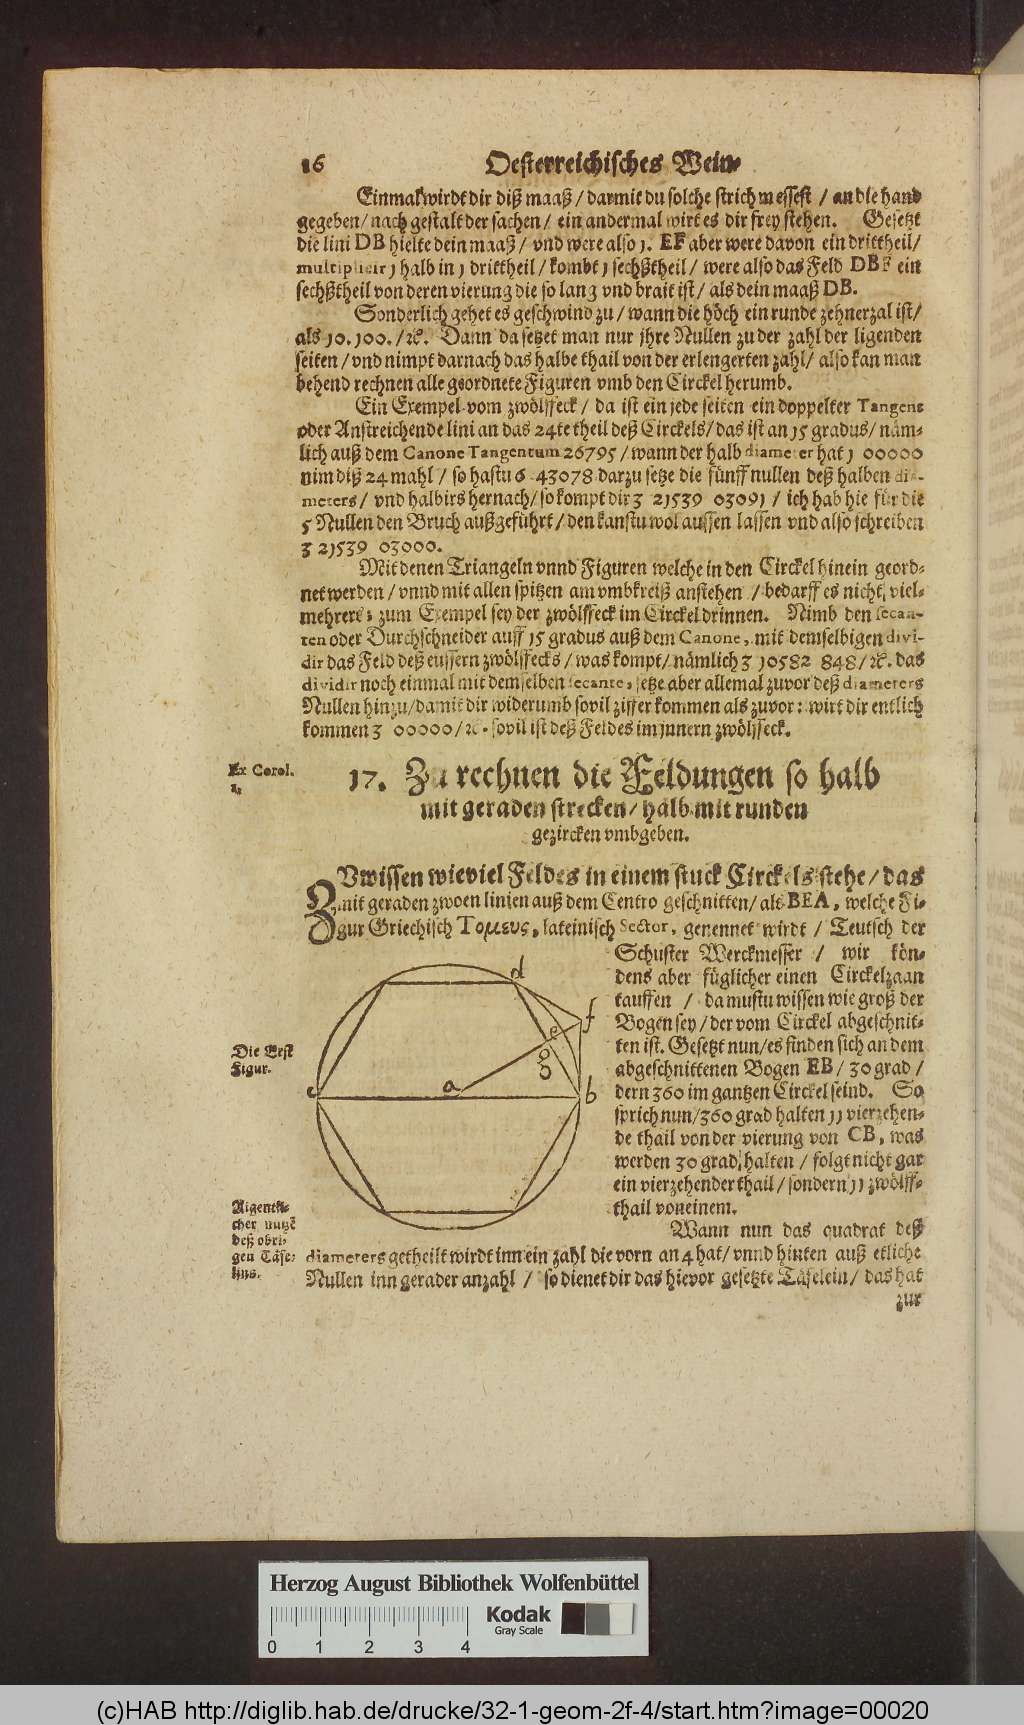 16 Oesterreichisches Wein-
Einmal wirdt dir diß maaß / darmit du solche strich messest / an die hand
gegeben / nach gestalt der sachen / ein andermal wirt es dir frey stehen. Gesetzt
die lini DB hielte dein maaß / vnd were also 1. EF aber were davon ein drittheil /
multiplicir 1 halb in 1 drittheil / kombt 1 sechßtheil / were also das Feld DBF ein
sechßtheil von deren vierung die so lang vnd brait ist / als dein maaß DB.
Sonderlich gehet es geschwind zu / wann die höch ein runde zehnerzal ist /
als 10. 100. / ꝛc. Dann da setzet man nur jhre Nullen zu der zahl der ligenden
seiten / vnd nimpt darnach das halbe thail von der erlengerten zahl / also kan man
behend rechnen alle geordnete Figuren vmb den Circkel herumb.
Ein Exempel vom zwölffeck / da ist ein jede seiten ein doppelter Tangens
oder Anstreichende lini an das 24te theil deß Circkels / das ist an 15 gradus / näm-
lich auß dem Canone Tangentum 26795 / wann der halb diameter hat 1 00000
nim diß 24 mahl / so hastu 6 43078 darzu setze die fünff nullen deß halben dia-
meters / vnd halbirs hernach / so kompt dir 3 21539 03091 / ich hab hie für die
5 Nullen den Bruch außgeführt / den kanstu wol aussen lassen vnd also schreiben
3 21539 03000.
Mit denen Triangeln vnnd Figuren welche in den Circkel hinein geord-
net werden / vnnd mit allen spitzen am vmbkreiß anstehen / bedarff es nicht viel-
mehrers; zum Exempel sey der zwölffeck im Circkel drinnen. Nimb den secan-
ten oder Durchschneider auff 15 gradus auß dem Canone, mit demselbigen divi-
dir das Feld deß eussern zwölffecks / was kompt / nämlich 3 10582 848 / ꝛc. das
dividir noch einmal mit demselben secante, setze aber allemal zuvor deß diameters
Nullen hinzu / damit dir widerumb sovil ziffer kommen als zuvor: wirt dir entlich
kommen 3 00000 / ꝛc. sovil ist deß Feldes im jnnern zwölffeck.
Ex Corol.
1.
17. Zu rechnen die Feldungen so halb
mit geraden strecken / halb mit runden
gezircken vmbgeben.
ZVwissen wieviel Feldes in einem stuck Circkels stehe / das
mit geraden zwoen linien auß dem Centro geschnitten / als BEA, welche Fi-
gur Griechisch Τομευς, lateinisch Sector, genennet wirdt / Teutsch der
Schuster Werckmesser / wir kön-
dens aber füglicher einen Circkelzaan
tauffen / da mustu wissen wie groß der
Bogen sey / der vom Circkel abgeschnit-
ten ist. Gesetzt nun / es finden sich an dem
abgeschnittenen Bogen EB / 30 grad /
dern 360 im gantzen Circkel seind. So
sprich nun / 360 grad halten 11 vierzehen-
de thail von der vierung von CB, was
werden 30 grad halten / folgt nicht gar
ein vierzehender thail / sondern 11 zwölff-
thail von einem.
d
f
e
g
a
b
c
Die Erst
Figur.
Aigentli-
cher nutzē
deß obri-
gen Täfe-
lins.
Wann nun das quadrat deß
diameters getheilt wirdt inn ein zahl die vorn an 4 hat / vnnd hinten auß etliche
Nullen inn gerader anzahl / so dienet dir das hievor gesetzte Täfelein / das hat
zur
Herzog August Bibliothek Wolfenbüttel
0 1 2 3 4
Kodak
Gray Scale
(c)HAB http://diglib.hab.de/drucke/32-1-geom-2f-4/start.htm?image=00020